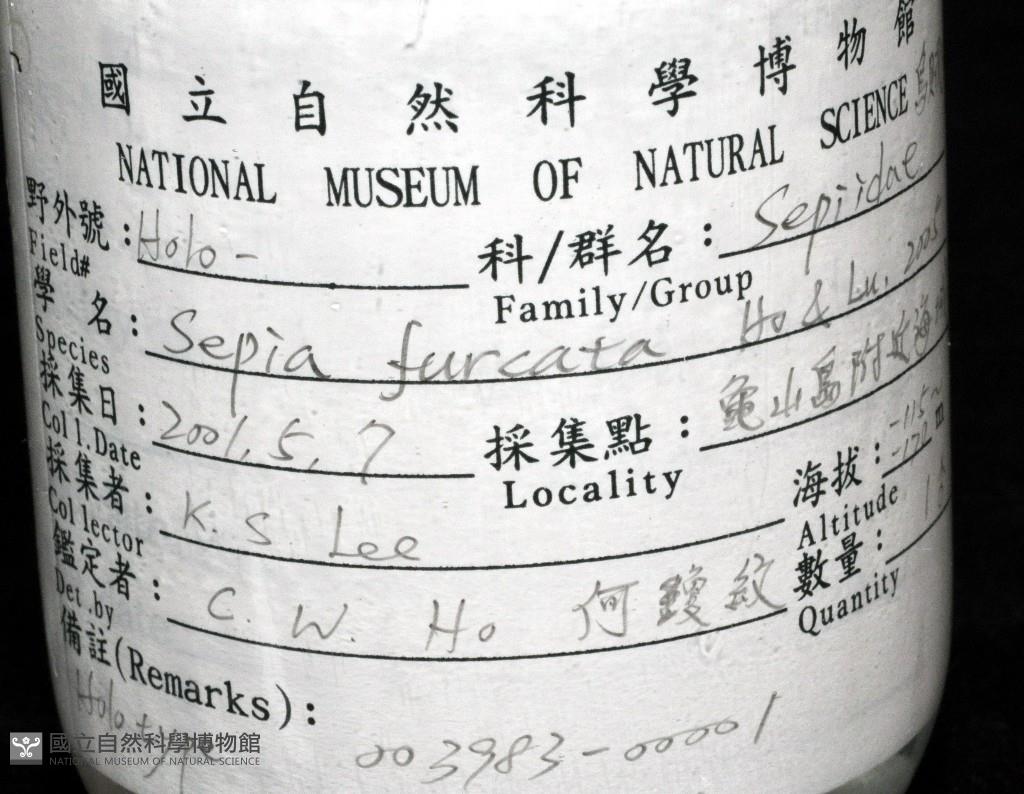 國立自然科學博物館
NATIONAL MUSEUM OF NATURAL SCIENCE
野外號:Holo- 科/群名:Sepiidae
Field# Family/Group
學名:Sepia furcata Ho & Lu, 2005
Species
採集日:2001,5,7 採集點:龜山島附近海
Coll.Date Locality
採集者:K.S Lee 海拔:-115~-122m
Collector Altitude
鑑定者:C. W. Ho 何瓊紋 數量:1
Det.by Quantity
備註(Remarks):
Holotype 003983-00001
國立自然科學博物館
NATIONAL MUSEUM OF NATURAL SCIENCE